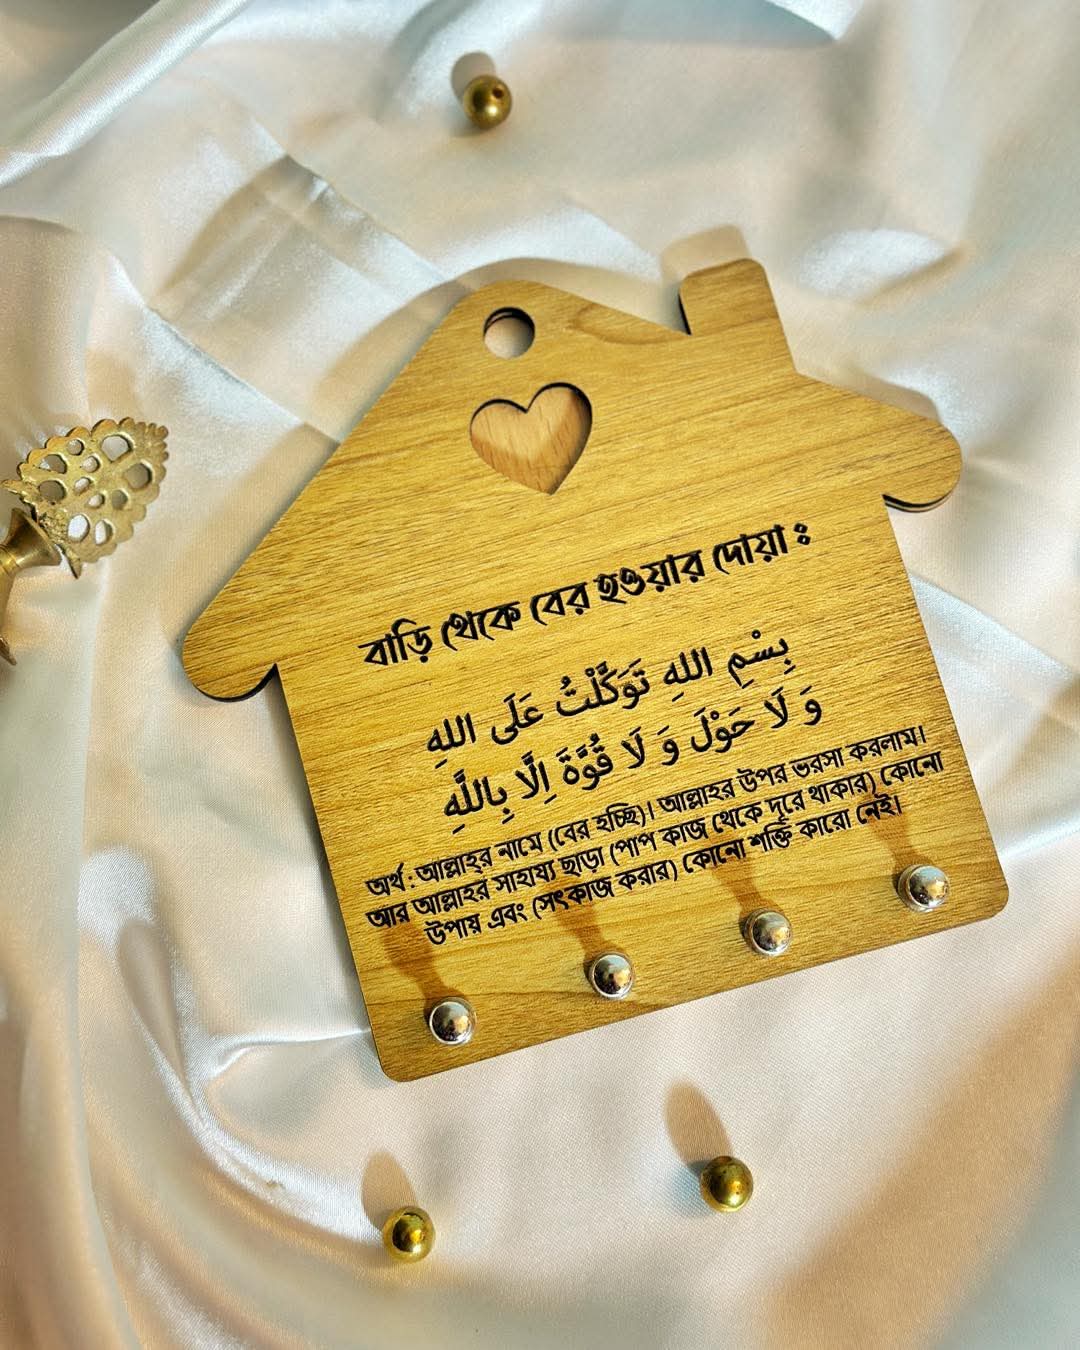 বাড়ি থেকে বের হওয়ার দোয়া :
بِسْمِ اللهِ تَوَكَّلْتُ عَلَى اللهِ
وَ لَا حَوْلَ وَ لَا قُوَّةَ اِلَّا بِاللَّهِ
অর্থ : আল্লাহ্‌র নামে (বের হচ্ছি)। আল্লাহর উপর ভরসা করলাম।
আর আল্লাহর সাহায্য ছাড়া (পাপ কাজ থেকে দূরে থাকার) কোনো
উপায় এবং (সৎকাজ করার) কোনো শক্তি কারো নেই।